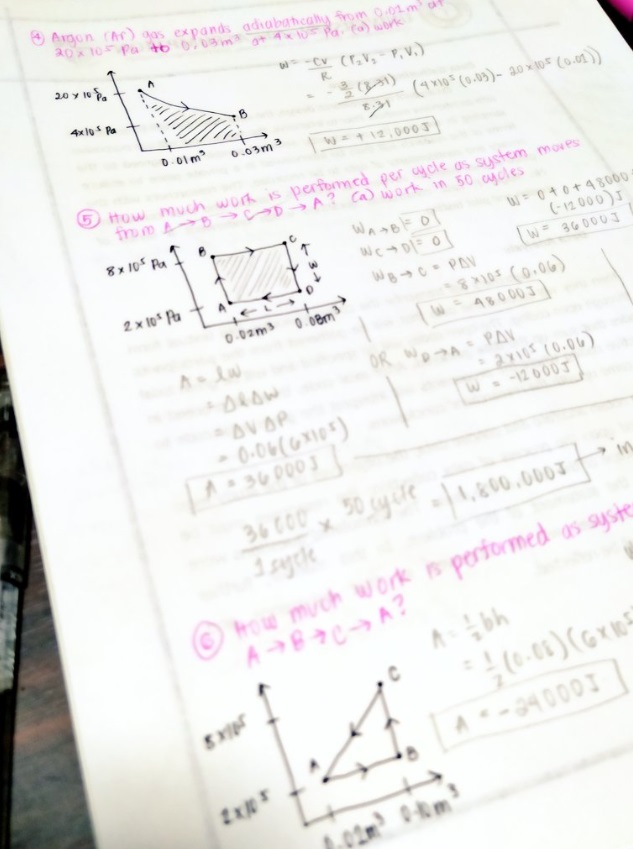 ④ Argon (Ar) gas expands adiabatically from 0.01 m³ at
20 x 10⁵ Pa to 0.03 m³ at 4x10⁵ Pa. (a) work
W = -Cv/R (P₂V₂ - P₁V₁)
= - 3/2 (8.31)/8.31 (4x10⁵ (0.03) - 20x10⁵ (0.01))
W = +12,000J
20 x 10⁵ Pa
4x10⁵ Pa
A
B
0.01m³ 0.03m³
⑤ How much work is performed per cycle as system moves
from A → B → C → D → A? (a) work in 50 cycles
8 x 10⁵ Pa
2 x 10⁵ Pa
B C
A D
L
W
0.02m³ 0.08m³
W A→B = 0
W C→D = 0
W B→C = PΔV
= 8x10⁵ (0.06)
W = 48000J
W = 0 + 0 + 48000
(-12000)J
W = 36000J
OR W D→A = PΔV
= 2x10⁵ (0.06)
W = -12000J
A = lw
= ΔlΔw
= ΔV ΔP
= 0.06(6x10⁵)
A = 36000J
36000/1 cycle x 50 cycle = 1,800,000J → in
⑥ How much work is performed as syste
A → B → C → A?
A = ½bh
= ½ (0.08)(6x10⁵
A = -24000J
8x10⁵
2x10⁵
C
A
B
0.02m³ 0.10m³